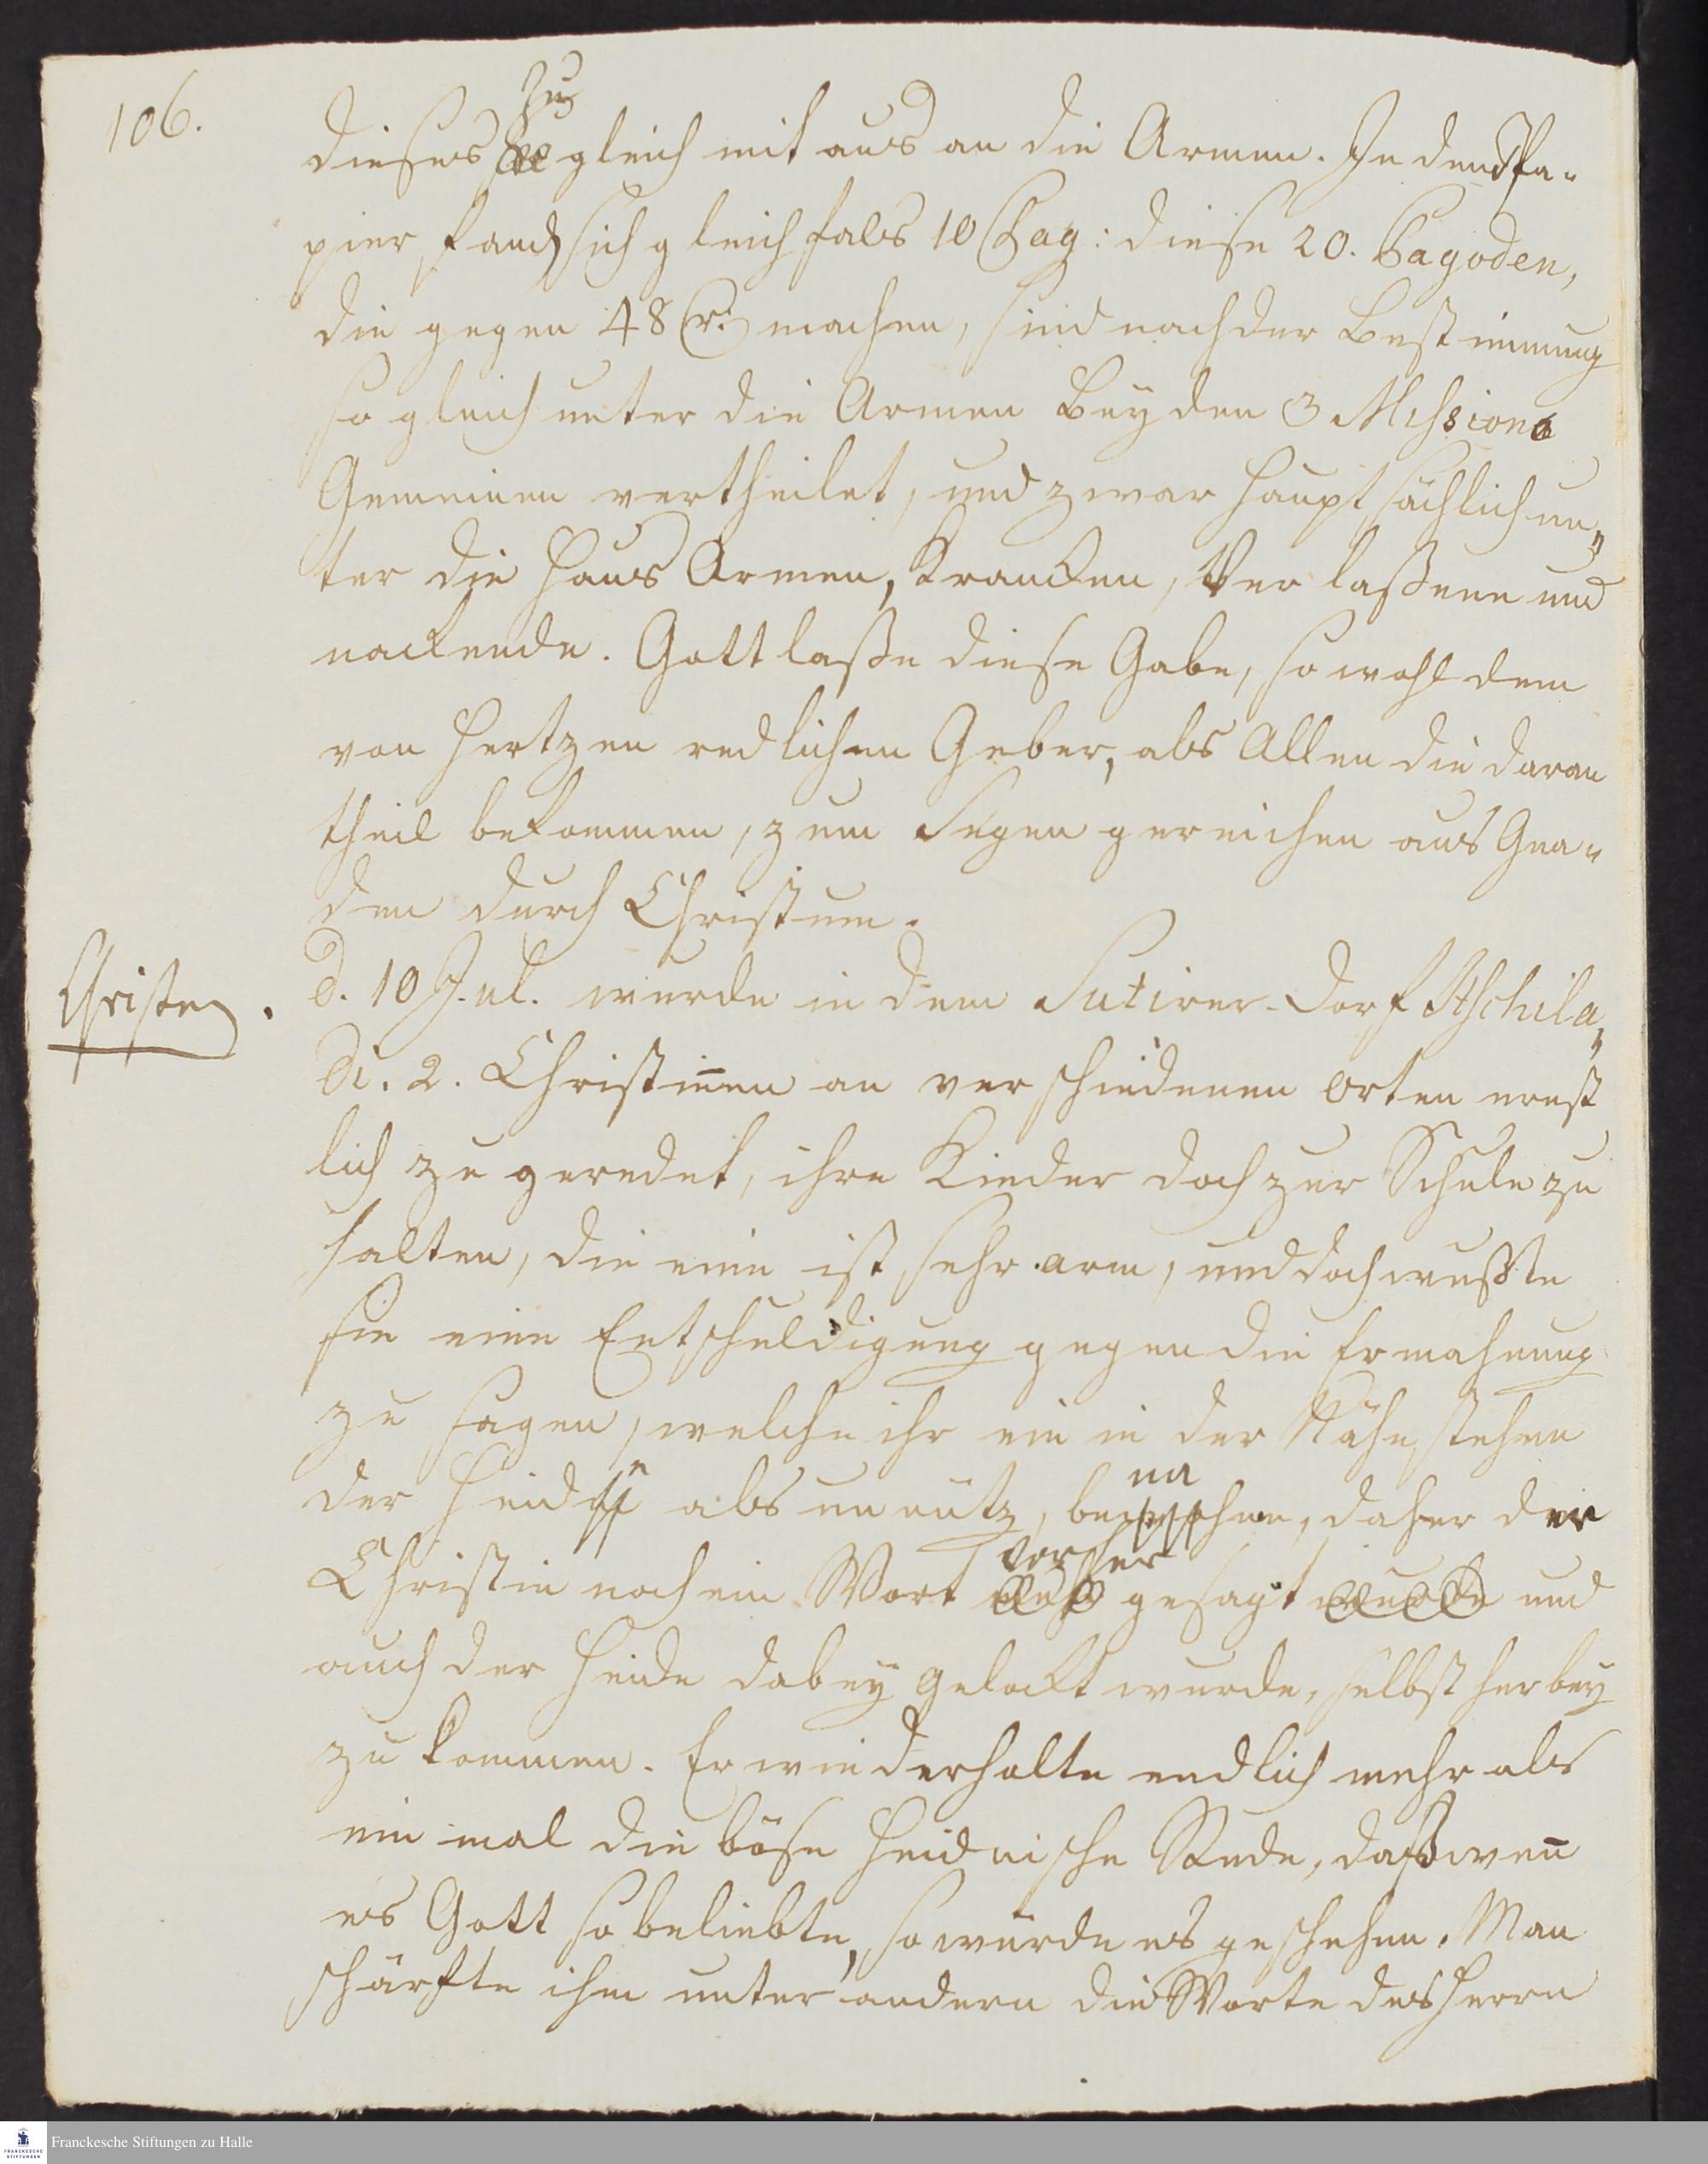 106.
dieses zugleich mit aus an die Armen. In dem Pa-
pier fand sich gleichfals 10 Pag: diese 20. Pagoden,
die gegen 48 r: machen, sind nach der Bestimmung
so gleich unter die Armen Bey den 3 Missions
Gemeinen vertheilet, und zwar hauptsächlich un-
ter die Haus Armen, Krancken, Verlaßene und
nackende. Gott laße diese Gabe, so wohl dem
von Hertzen redlichen Geber, als Allen die daran
theil bekommen, zum Segen gereichen aus Gna-
den durch Christum.
Christen.
d. 10 Jul. wurde in dem Sutirer-Dorf Atschila-
di. 2. Christiñen an verschiedenen Orten ernst
lich zu geredet, ihre Kinder doch zur Schule zu
halten, die eine ist sehr arm, und doch wußte
sie eine Entschuldigung gegen die Ermahnung
zu sagen, welche ihr ein in der Nähe stehen
der Heide als unnütz, benahm, daher der
Christin noch ein Wort vorher gesagt und
auch der Heide dabey gelockt wurde, selbst herbey
zu kommen. Er wiederholte endlich mehr als
ein mal die böse Heidnische Rede, daß weñ
es Gott so beliebte, so würde es geschehen. Man
schärfte ihm unter andern die Worte des Herrn
Franckesche Stiftungen zu Halle
FRANCKESCHE
STIFTUNGEN